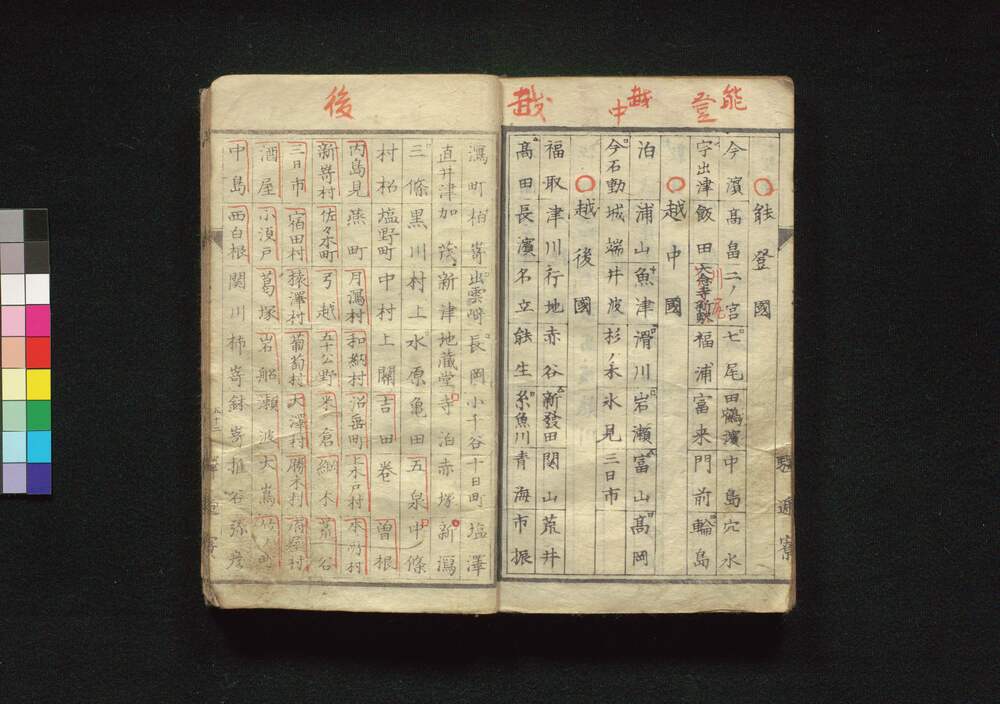 能登
越中
越
能登國
今濱 高畠 二ノ宮 七尾 田鶴濱 中島 穴水
宇出津 飯田 大念寺新駅 福浦 富来 門前 輪島
越中國
泊 浦山 魚津 滑川 岩瀬 富山 高岡
今石動 城端 井波 杉ノ木 氷見 三日市
越後國
福取 津川 行地 赤谷 新發田 関山 荒井
高田 長濱 名立 能生 糸魚川 青海 市振
驅逓寮
後
潟町 柏嵜 出雲嵜 長岡 小千谷 十日町 塩澤
直井津 加茂 新津 地蔵堂 寺泊 赤塚 新潟
三條 黒川 村上 水原 亀田 五泉 中ノ條
村松 塩野町 中村 上関 吉田 巻 曽根
内島見 燕町 月潟村 和納村 沼垂町 上木戸村 本所村
新嵜村 佐々木町 弓越 五十公野 米倉 綱木 荒谷
三日市 宿田村 猿澤村 葡萄村 大澤村 勝木村 府屋村
酒屋 小須戸 葛塚 岩船 瀬波 大嶌 竹ノ町
中島 西白根 関川 柿嵜 鉢嵜 椎谷 弥彦